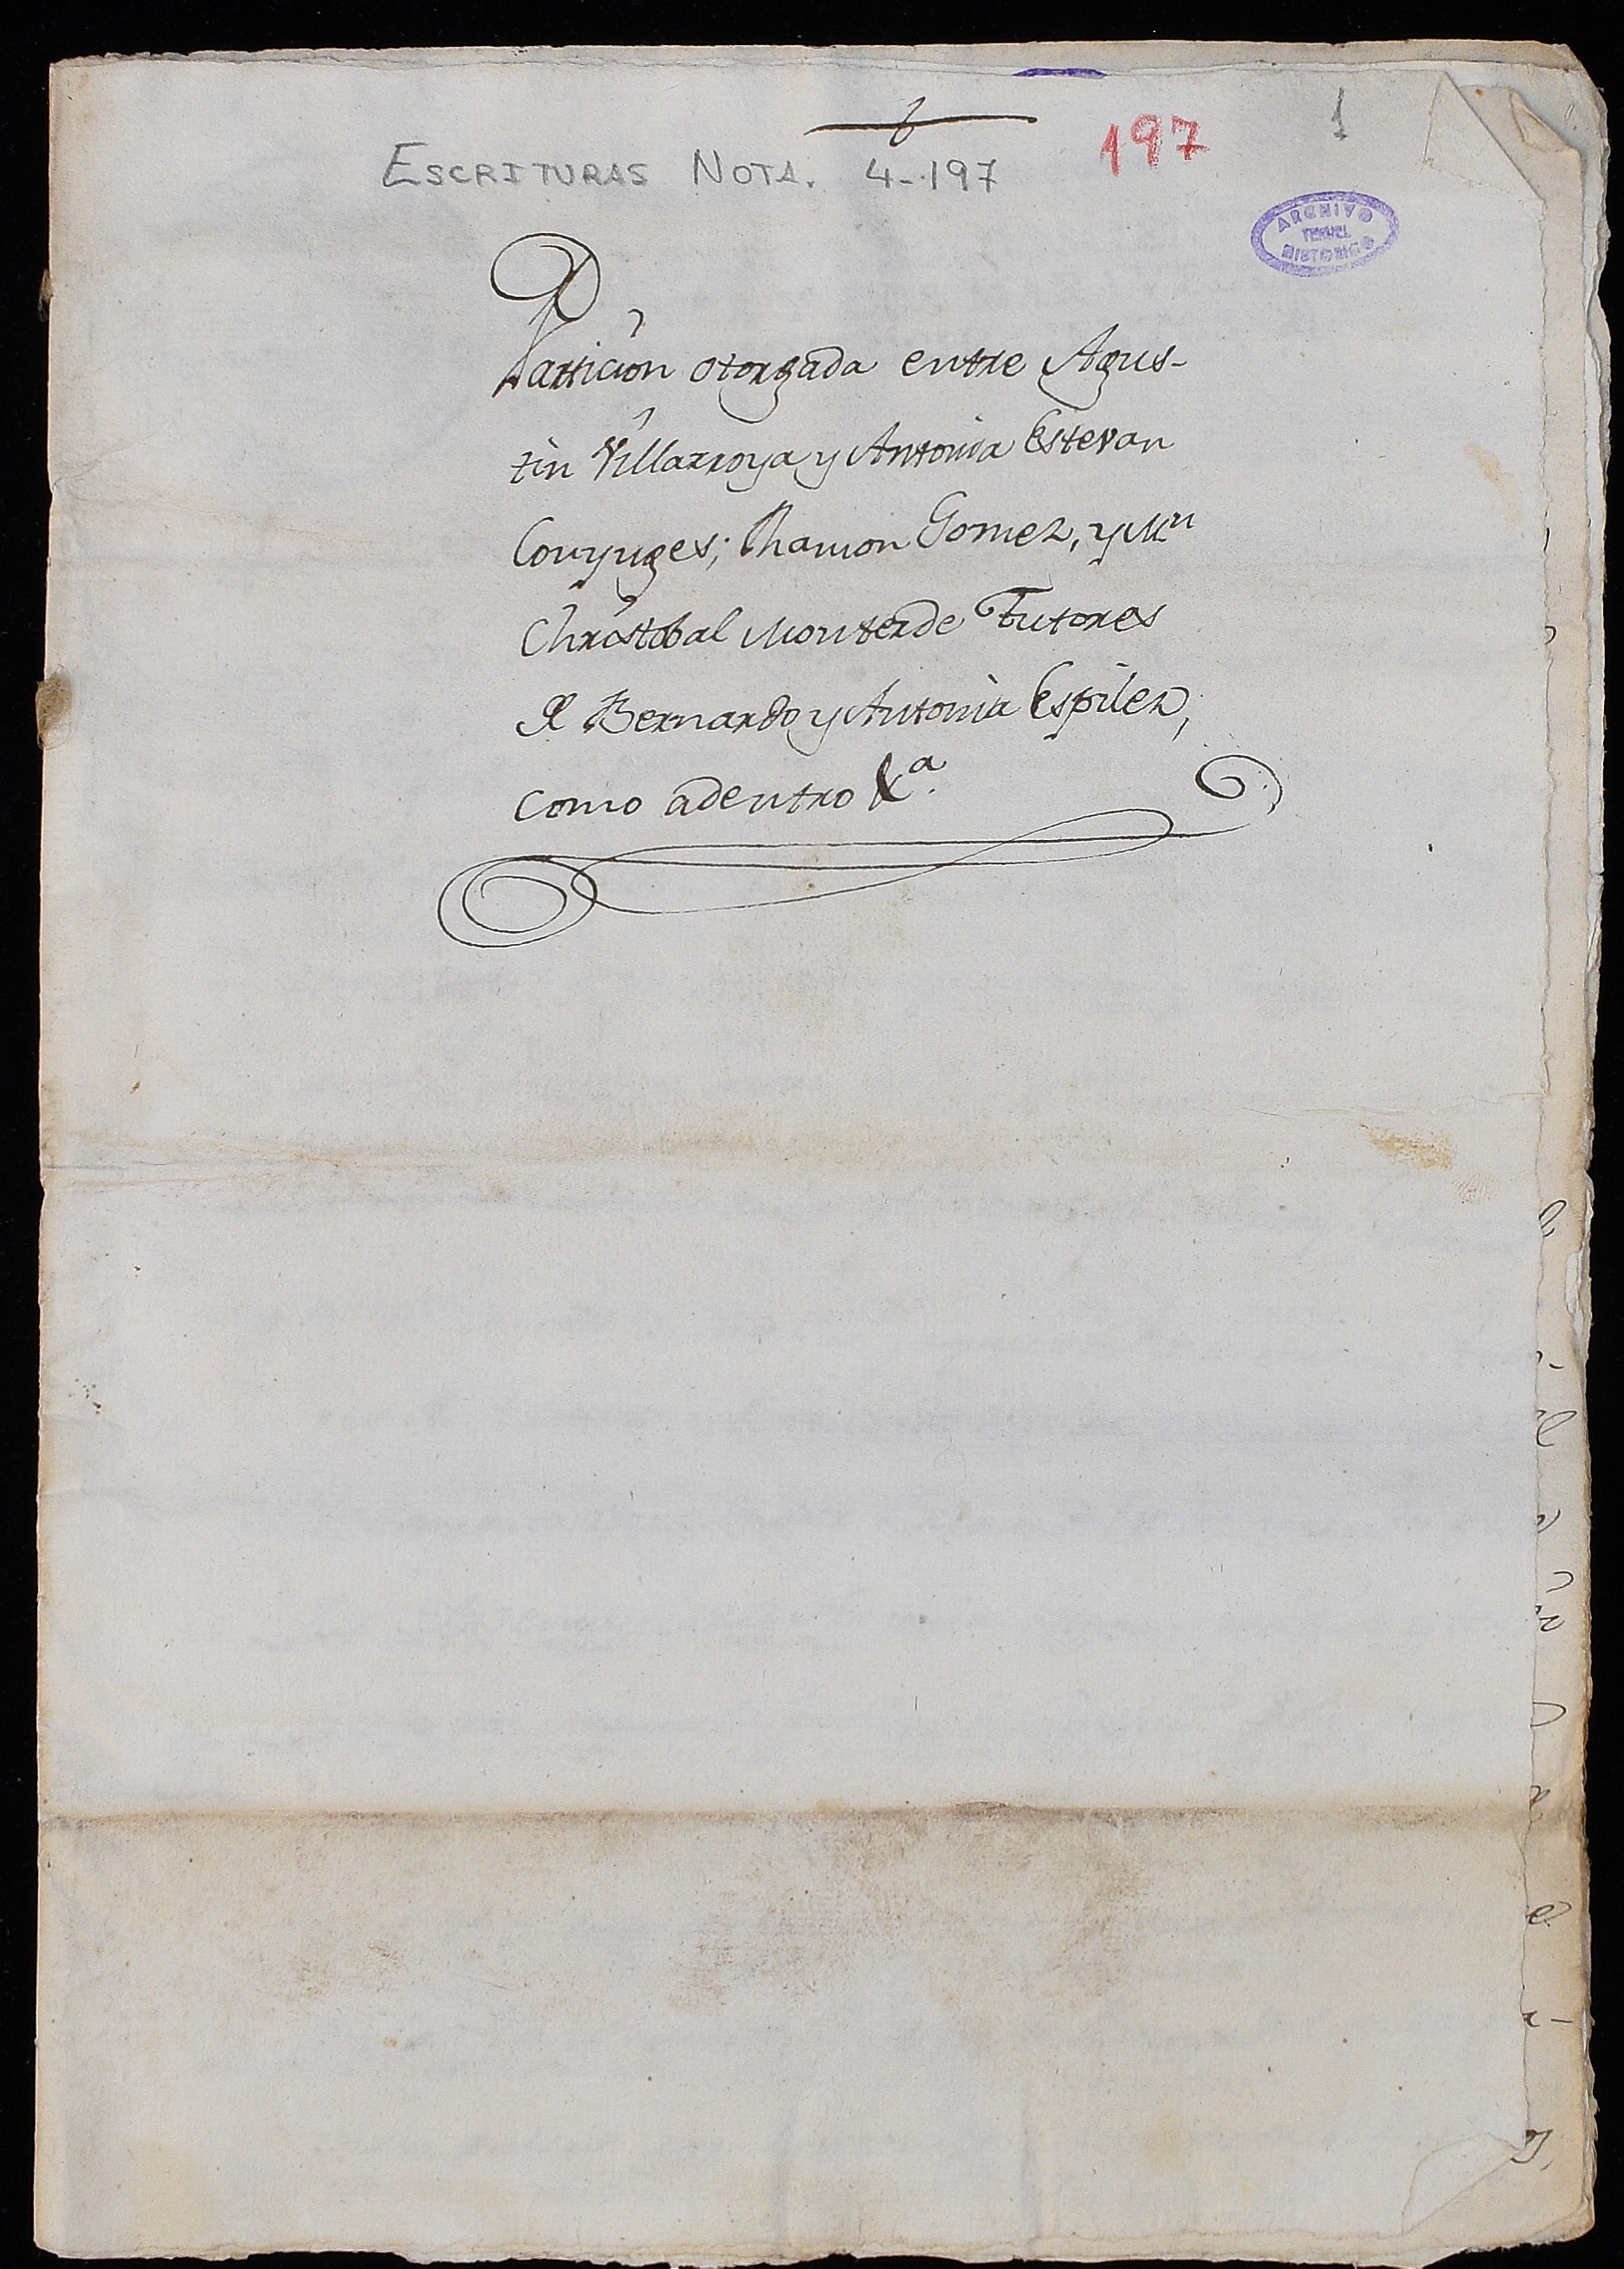 ESCRITURAS NOTA. 4-197
197
1
ARCHIVO
TERUEL
HISTORICO
Particion otorgada entre Agus-
tin Villarroya y Antonia Estevan
Conyuges; Rhamon Gomez, y Mn
Christobal Monterde Tutores
de Bernardo y Antonia Espilez,
como adentro &a.